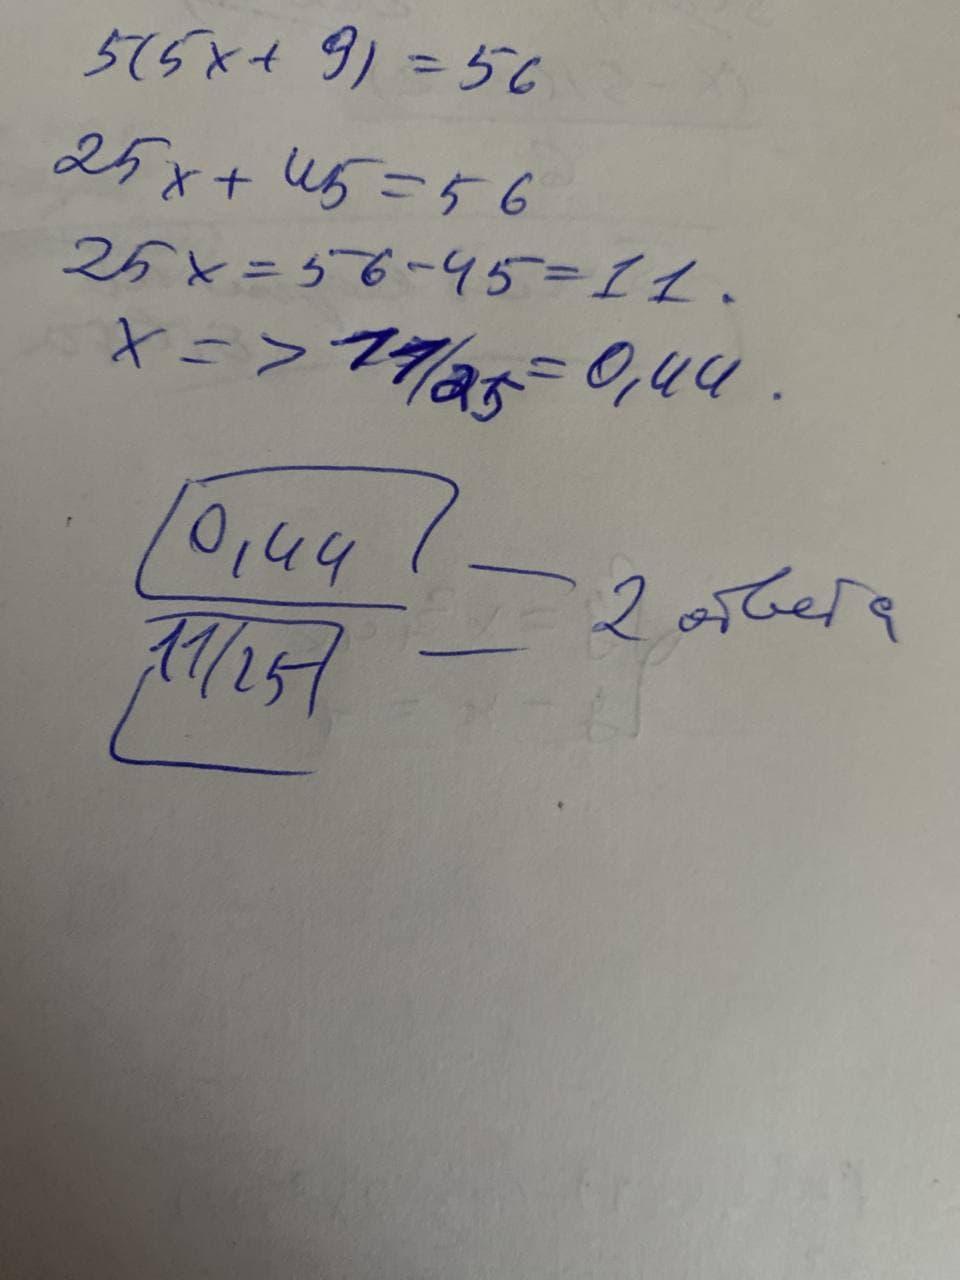 5(5x + 9) = 56
25x + 45 = 56
25x = 56 - 45 = 11.
x = > 11/25 = 0,44.
0,44
11/25
2 ответа